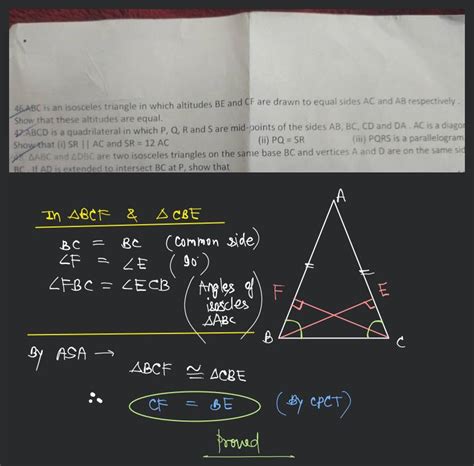 46.ABC is an isosceles triangle in which altitudes BE and CF are drawn to equal sides AC and AB respectively.
Show that these altitudes are equal.
47.ABCD is a quadrilateral in which P, Q, R and S are mid-points of the sides AB, BC, CD and DA . AC is a diagon
Show that (i) SR || AC and SR = 12 AC (ii) PQ = SR (iii) PQRS is a parallelogram
48. ΔABC and ΔDBC are two isosceles triangles on the same base BC and vertices A and D are on the same sid
BC . If AD is extended to intersect BC at P, show that
In ΔBCF & ΔCBE
BC = BC (Common side)
∠F = ∠E (90°)
∠FBC = ∠ECB (Angles of isoscles ΔABC)
By ASA →
ΔBCF ≅ ΔCBE
∴ CF = BE (By CPCT)
Proved
A
F
E
B
C